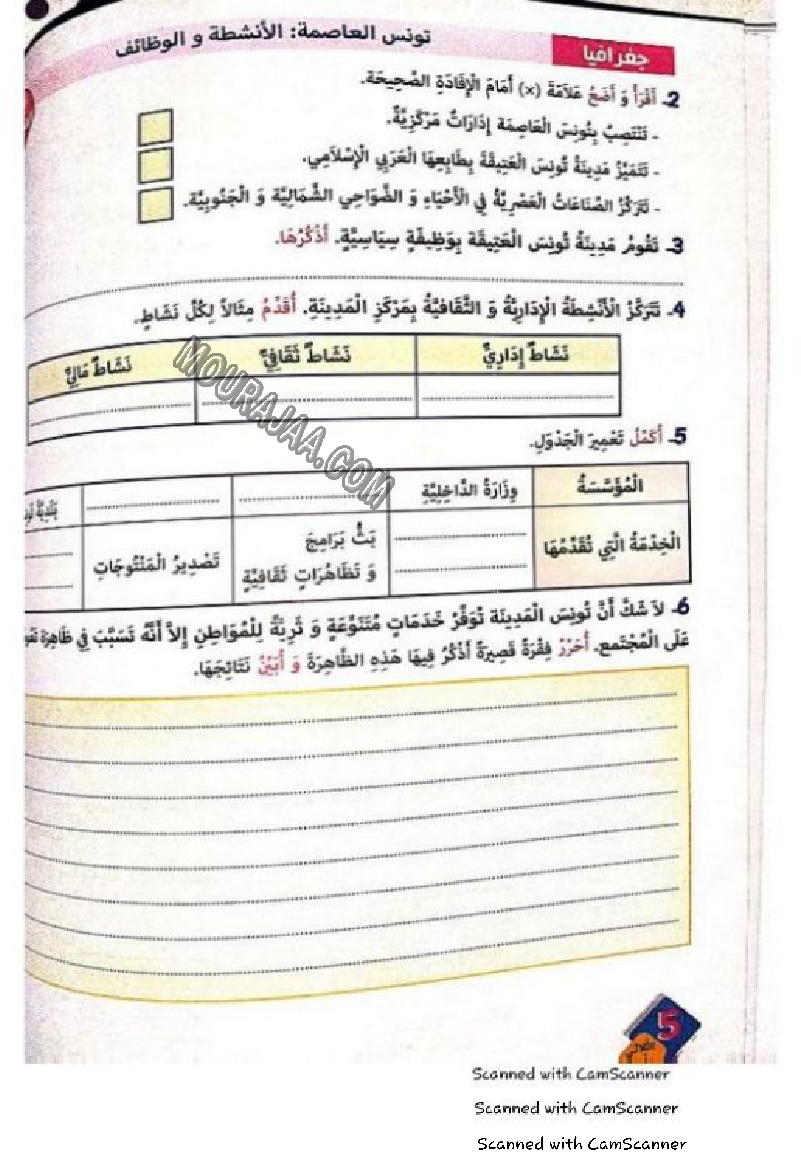 تونس العاصمة: الأنشطة و الوظائف
جغرافيا
2- أَقْرَأُ وَ أَضَعُ عَلاَمَةَ (×) أَمَامَ الْإِفَادَةِ الصَّحِيحَة.
- تَنْتَصِبُ بِتُونِسَ الْعَاصِمَة إِدَارَاتٌ مَرْكَزِيَّةٌ.
- تَتَمَيَّزُ مَدِينَةُ تُونِسَ الْعَتِيقَةَ بِطَابِعِهَا الْعَرَبِي الْإِسْلاَمِي.
- تَتَرَكَّزُ الصِّنَاعَاتُ الْعَصْرِيَّةُ فِي الْأَحْيَاءِ وَ الضَّوَاحِي الشَّمَالِيَّة وَ الْجَنُوبِيَّة.
3- تَقُومُ مَدِينَةُ تُونِسَ الْعَتِيقَة بِوَظِيفَةٍ سِيَاسِيَّةٍ. أَذْكُرُهَا.
4- تَتَرَكَّزُ الْأَنْشِطَةُ الْإِدَارِيَّةُ وَ الثَّقَافِيَّةُ بِمَرْكَزِ الْمَدِينَةِ. أُقَدِّمُ مِثَالاً لِكُلِّ نَشَاطٍ.
نَشَاطٌ إِدَارِيٌّ نَشَاطٌ ثَقَافِيٌّ نَشَاطٌ مَالِيٌّ
MOURAJAA.COM
5- أُكَمِّلُ تَعْمِيرَ الْجَدْوَلِ.
الْمُؤَسَّسَةُ وِزَارَةُ الدَّاخِلِيَّةِ بَلَدِيَّةُ
الْخِدْمَةُ الَّتِي تُقَدِّمُهَا بَثُّ بَرَامِجَ
وَ تَظَاهُرَاتٍ ثَقَافِيَّةٍ تَصْدِيرُ الْمَنْتُوجَاتِ
6- لاَ شَكَّ أَنَّ تُونِسَ الْمَدِينَة تُوَفِّرُ خَدَمَاتٍ مُتَنَوِّعَةٍ وَ ثَرِيَّةً لِلْمُوَاطِنِ إِلاَّ أَنَّهُ تَسَبَّبَ فِي ظَاهِرَة
عَلَى الْمُجْتَمع. أُحَرِّرُ فِقْرَةً قَصِيرَةً أَذْكُرُ فِيهَا هَذِهِ الظَّاهِرَةَ وَ أُبَيِّنُ نَتَائِجَهَا.
5
Scanned with CamScanner
Scanned with CamScanner
Scanned with CamScanner